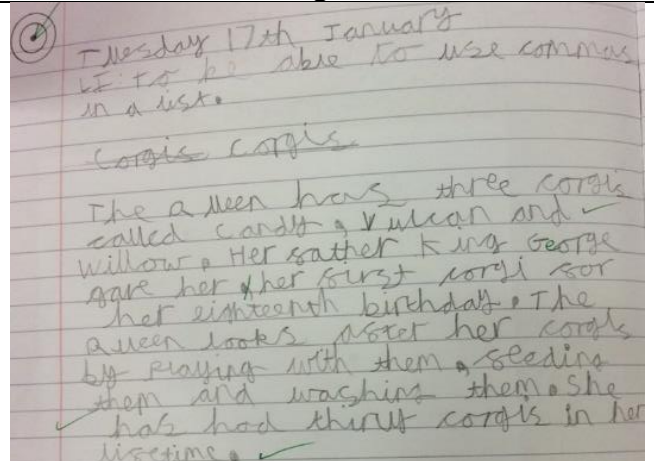 Tuesday 17th January
LI: To be able to use commas
in a list.
Corgis corgis
The Queen has three corgis
called Candy, Vulcan and
Willow. Her father King George
gave her her first corgi for
her eighteenth birthday. The
Queen looks after her corgis
by playing with them, feeding
them and washing them. She
has had thirty corgis in her
lifetime.